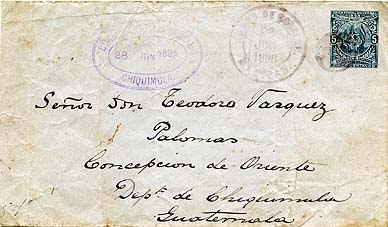 28 JUN 1898
CHIQUIMULA
1898
5 5
Señor Don Teodoro Vasquez
Palomas
Concepcion de Oriente
Depto. de Chiquimula
Guatemala